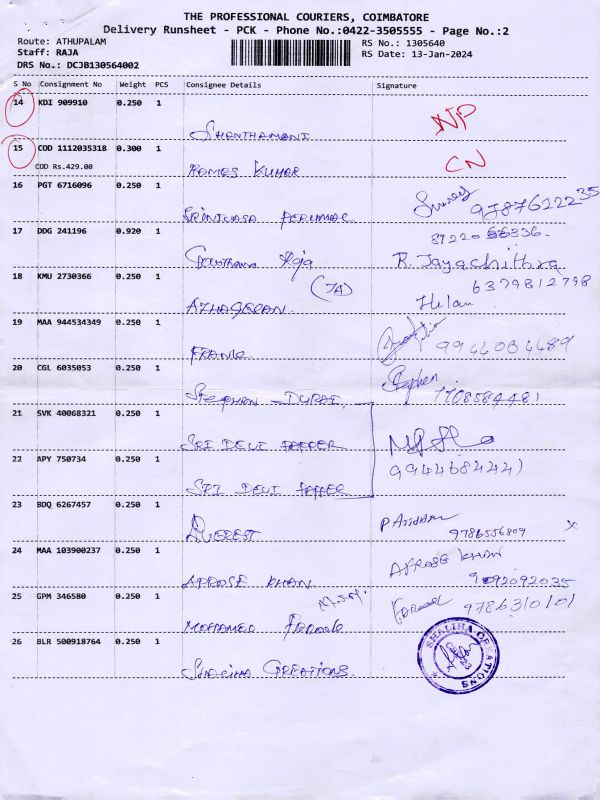 THE PROFESSIONAL COURIERS, COIMBATORE
Delivery Runsheet - PCK - Phone No.:0422-3505555 - Page No.:2
Route: ATHUPALAM
RS No.: 1305640
Staff: RAJA
RS Date: 13-Jan-2024
DRS No.: DCJB130564002
S No Consignment No Weight PCS Consignee Details Signature
14 KDI 909910 0.250 1
SHANTHAMANI NP
15 COD 1112035318 0.300 1
COD Rs.429.00 RAMES KUMAR CN
16 PGT 6716096 0.250 1
SRINIVASA PERUMAL 9787622235
17 DDG 241196 0.920 1
Raja R. Jayachithra
6379812798
18 KMU 2730366 0.250 1
(JA) Helan
19 MAA 944534349 0.250 1
FRANK
20 CGL 6035053 0.250 1
STEPHAN DURAI Stephen
7708584481
21 SVK 40068321 0.250 1
SRI DEVI PAPPER
22 APY 750734 0.250 1
SRI DEVI PAPPER 9944684441
23 BDQ 6267457 0.250 1
EVEREST 9786556809 x
24 MAA 103900237 0.250 1
AFROSE KHAN AFROSE KHAN
9092092035
25 GPM 346580 0.250 1 M.S.M.
MOHAMED Farook Farook 9786310101
26 BLR 500918764 0.250 1
SHALIHA CREATIONS
SHALIHA CREATIONS